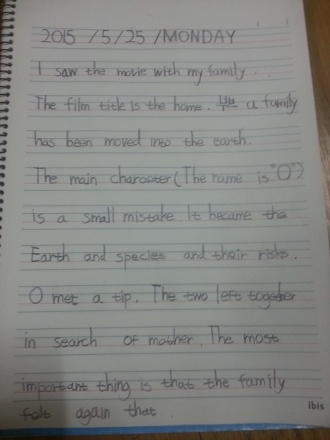 2015 /5/25 /MONDAY
I saw the movie with my family..
The film title is the home. a family
has been moved into the earth.
The main character (The name is "O")
is a small mistake It became the
Earth and species and their risks.
O met a tip. The two left together
in search of mother. The most
important thing is that the family
felt again that.
ibis